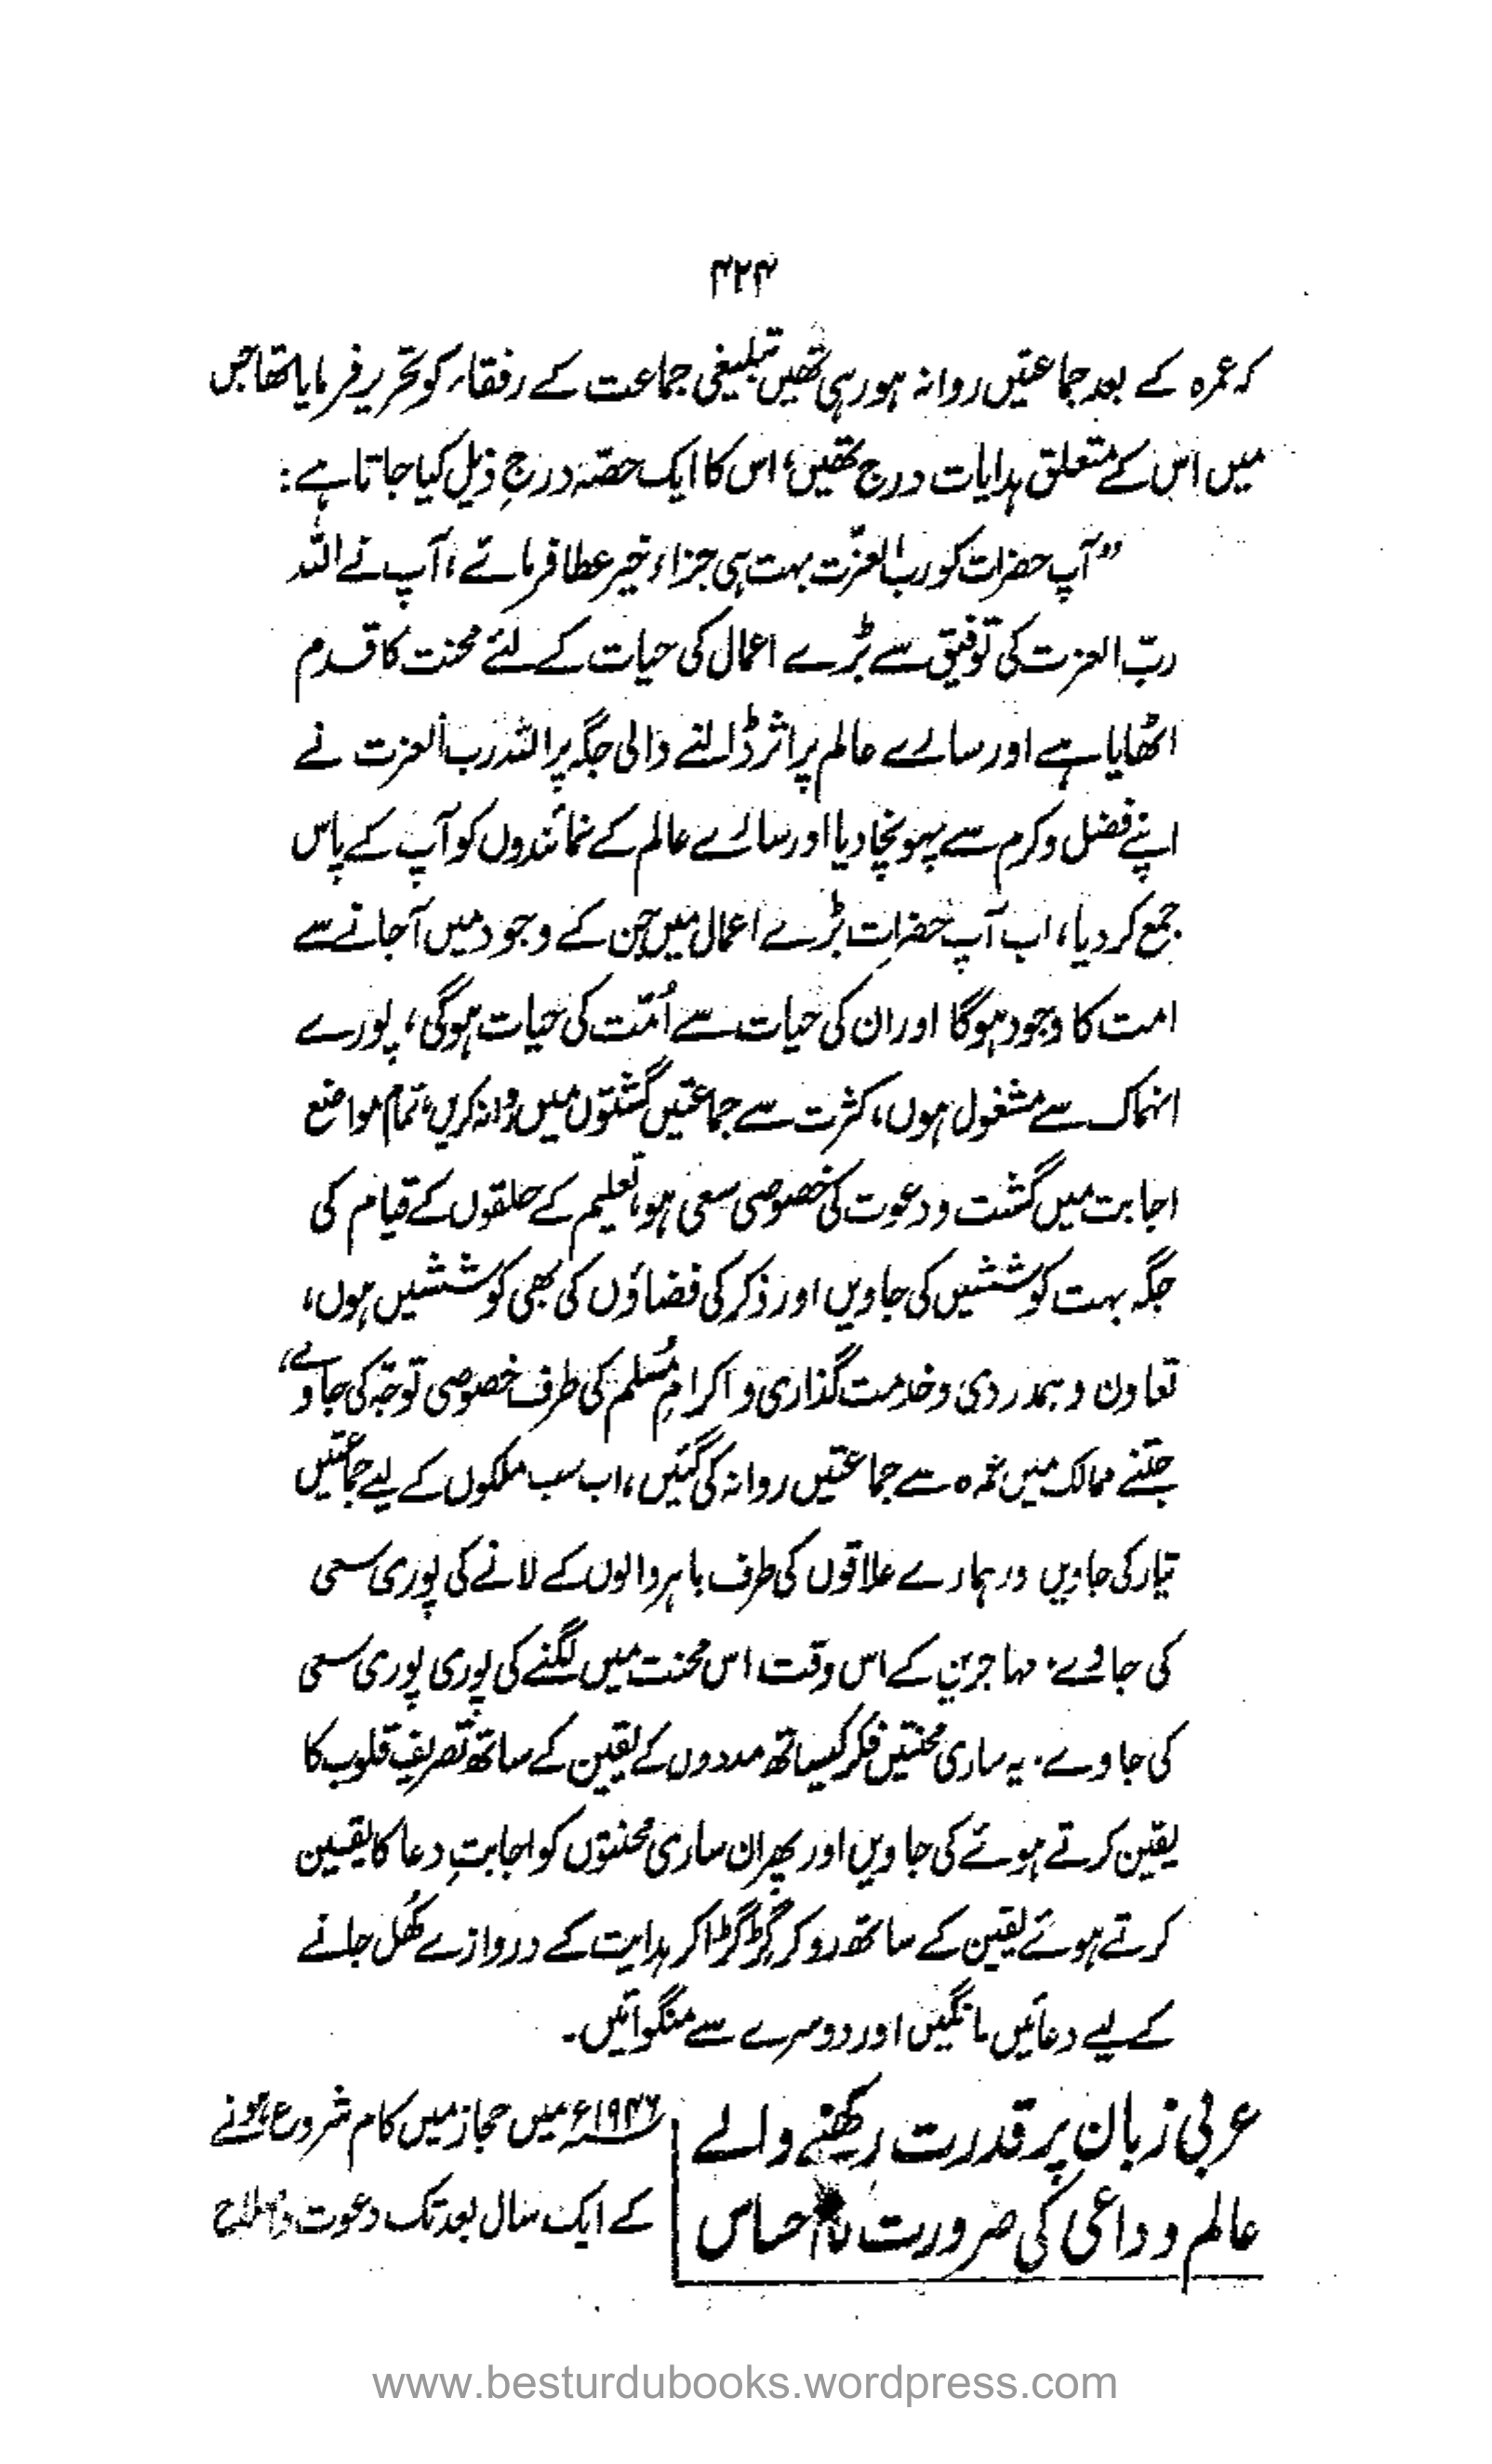 ۴۲۴
کہ عمرہ کے بعد جماعتیں روانہ ہو رہی تھیں تبلیغی جماعت کے رفقاء کو تحریر فرمایا تھا جس
میں اس کے متعلق ہدایات درج تھیں، اس کا ایک حصّہ درجِ ذیل کیا جاتا ہے:
”آپ حضرات کو ربُّ العزّت بہت ہی جزاء خیر عطا فرمائے، آپ نے اللہ
ربّ العزت کی توفیق سے بڑے اعمال کی حیات کے لئے محنت کا قدم
اٹھایا ہے اور سارے عالم پر اثر ڈالنے والی جگہ پر اللہ رب العزت نے
اپنے فضل و کرم سے پہونچا دیا اور سارے عالم کے نمائندوں کو آپ کے پاس
جمع کر دیا، اب آپ حضرات بڑے اعمال میں جن کے وجود میں آجانے سے
امت کا وجود ہوگا اور ان کی حیات سے اُمّت کی حیات ہوگی، پورے
انہماک سے مشغول ہوں، کثرت سے جماعتیں گشتوں میں روانہ کریں، تمام مواضع
اجابت میں گشت و دعوت کی خصوصی سعی ہو، تعلیم کے حلقوں کے قیام کی
جگہ بہت کوششیں کی جاویں اور ذکر کی فضاؤں کی بھی کوششیں ہوں،
تعاون و ہمدردی و خدمت گذاری و اکرامِ مُسلم کی طرف خصوصی توجّہ کی جاوے،
جتنے ممالک میں عمرہ سے جماعتیں روانہ کی گئیں، اب سب ملکوں کے لیے جماعتیں
تیار کی جاویں ور ہمارے علاقوں کی طرف باہر والوں کے لانے کی پوری سعی
کی جاوے۔ مہاجرین کے اس وقت اس محنت میں لگنے کی پوری پوری سعی
کی جاوے۔ یہ ساری محنتیں فکر کیساتھ مددوں کے یقین کے ساتھ تصریفِ قلوب کا
یقین کرتے ہوئے کی جاویں اور پھر ان ساری محنتوں کو اجابتِ دعا کا یقین
کرتے ہوئے یقین کے ساتھ رو کر گڑگڑا کر ہدایت کے دروازے کھُل جانے
کے لیے دعائیں مانگیں اور دوسرے سے منگوائیں۔
عربی زبان پر قدرت رکھنے والے
عالم و داعی کی ضرورت کا احساس
۱۹۴۶ء میں حجاز میں کام شروع ہونے
کے ایک سال بعد تک دعوت و اصلاح
www.besturdubooks.wordpress.com